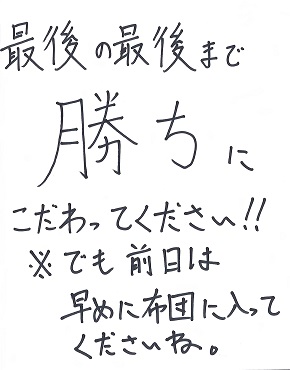 最後の最後まで
勝ちに
こだわってください!!
※でも前日は
早めに布団に入って
くださいね。